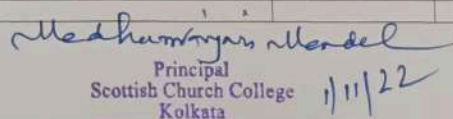 Madhumanjari Mandal
Principal
Scottish Church College
1/11/22
Kolkata